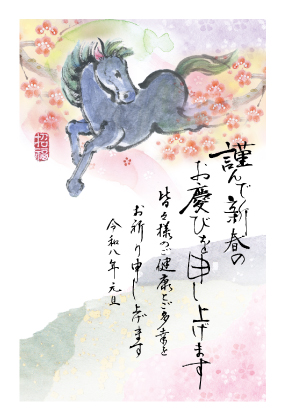 謹んで新春の
お慶びを申し上げます
皆々様のご健康とご多幸を
お祈り申し上げます
令和八年元旦
招福